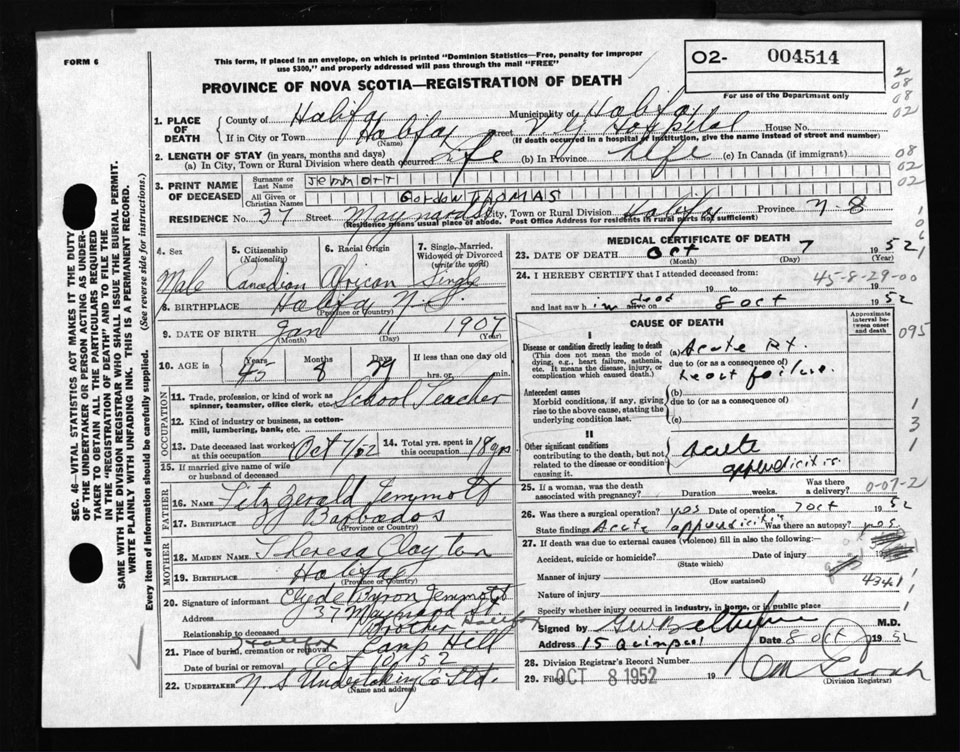 FORM 6
This form, if placed in an envelope, on which is printed "Dominion Statistics—Free, penalty for improper
use $300," and properly addressed will pass through the mail "FREE"
O2- 004514
For use of the Department only
PROVINCE OF NOVA SCOTIA—REGISTRATION OF DEATH
2
08
08
02
1. PLACE OF DEATH
County of Halifax Municipality of Halifax
If in City or Town Halifax Street N.S. Hospital House No.
(Name) (If death occurred in a hospital or institution, give the name instead of street and number)
2. LENGTH OF STAY (in years, months and days)
(a) In City, Town or Rural Division where death occurred Life (b) In Province Life (c) In Canada (if immigrant)
08
02
02
3. PRINT NAME OF DECEASED
Surname or Last Name Jemmott
All Given or Christian Names Gordon THOMAS
RESIDENCE No. 37 Street Maynard St City, Town or Rural Division Halifax Province N-S
(Residence means usual place of abode. Post Office Address for rural parts not sufficient)
4. Sex Male
5. Citizenship (Nationality) Canadian
6. Racial Origin African
7. Single, Married, Widowed or Divorced (write the word) Single
8. BIRTHPLACE Halifax N.S.
(Province or Country)
9. DATE OF BIRTH Jan 11 1907
(Month) (Day) (Year)
10. AGE in Years 45 Months 8 Days 29 If less than one day old
hrs. or min.
OCCUPATION
11. Trade, profession, or kind of work as spinner, teamster, office clerk, etc. School Teacher
12. Kind of industry or business, as cotton-mill, lumbering, bank, etc.
13. Date deceased last worked at this occupation Oct 7/52 14. Total yrs. spent in this occupation 18 yrs
15. If married give name of wife or husband of deceased
FATHER
16. NAME Fitz Gerald Jemmott
17. BIRTHPLACE Barbados
(Province or Country)
MOTHER
18. MAIDEN NAME Theresa Clayton
19. BIRTHPLACE Halifax
(Province or Country)
20. Signature of informant Clyde Jemmott
Address 37 Maynard St. Halifax
Relationship to deceased Brother
21. Place of burial, cremation or removal Halifax Camp Hill
Date of burial or removal Oct 10/52
22. UNDERTAKER N.S Undertaking Co Ltd.
(Name and address)
MEDICAL CERTIFICATE OF DEATH
23. DATE OF DEATH Oct 7 1952
(Month) (Day) (Year)
24. I HEREBY CERTIFY that I attended deceased from:
45-8-29-00
19 to 19
and last saw him alive on dead 8 oct 1952
CAUSE OF DEATH
Approximate interval between onset and death
095
I
Disease or condition directly leading to death
(This does not mean the mode of dying, e.g., heart failure, asthenia, etc. It means the disease, injury, or complication which caused death.)
(a) Acute Rt.
due to (or as a consequence of)
heart failure.
Antecedent causes
Morbid conditions, if any, giving rise to the above cause, stating the underlying condition last.
(b)
due to (or as a consequence of)
(c)
II
Other significant conditions contributing to the death, but not related to the disease or condition causing it.
Acute
appendicitis
25. If a woman, was the death associated with pregnancy? Duration weeks. Was there a delivery?
0-07-2
26. Was there a surgical operation? yes Date of operation 7 oct 1952
State findings Acute appendicitis Was there an autopsy? yes.
27. If death was due to external causes (violence) fill in also the following:
Accident, suicide or homicide? Date of injury 19
(State which)
Manner of injury 4341
(How sustained)
Nature of injury
Specify whether injury occurred in industry, in home, or in public place
Signed by M.D.
Address Date 8 Oct 1952
28. Division Registrar's Record Number
29. Filed OCT 8 1952 19
(Division Registrar)
SEC. 46—VITAL STATISTICS ACT MAKES IT THE DUTY
OF THE UNDERTAKER OR PERSON ACTING AS UNDER-
TAKER TO OBTAIN ALL THE PARTICULARS REQUIRED
IN THE "REGISTRATION OF DEATH" AND TO FILE THE
SAME WITH THE DIVISION REGISTRAR WHO SHALL ISSUE THE BURIAL PERMIT.
WRITE PLAINLY WITH UNFADING INK. THIS IS A PERMANENT RECORD.
Every item of information should be carefully supplied. (See reverse side for instructions.)